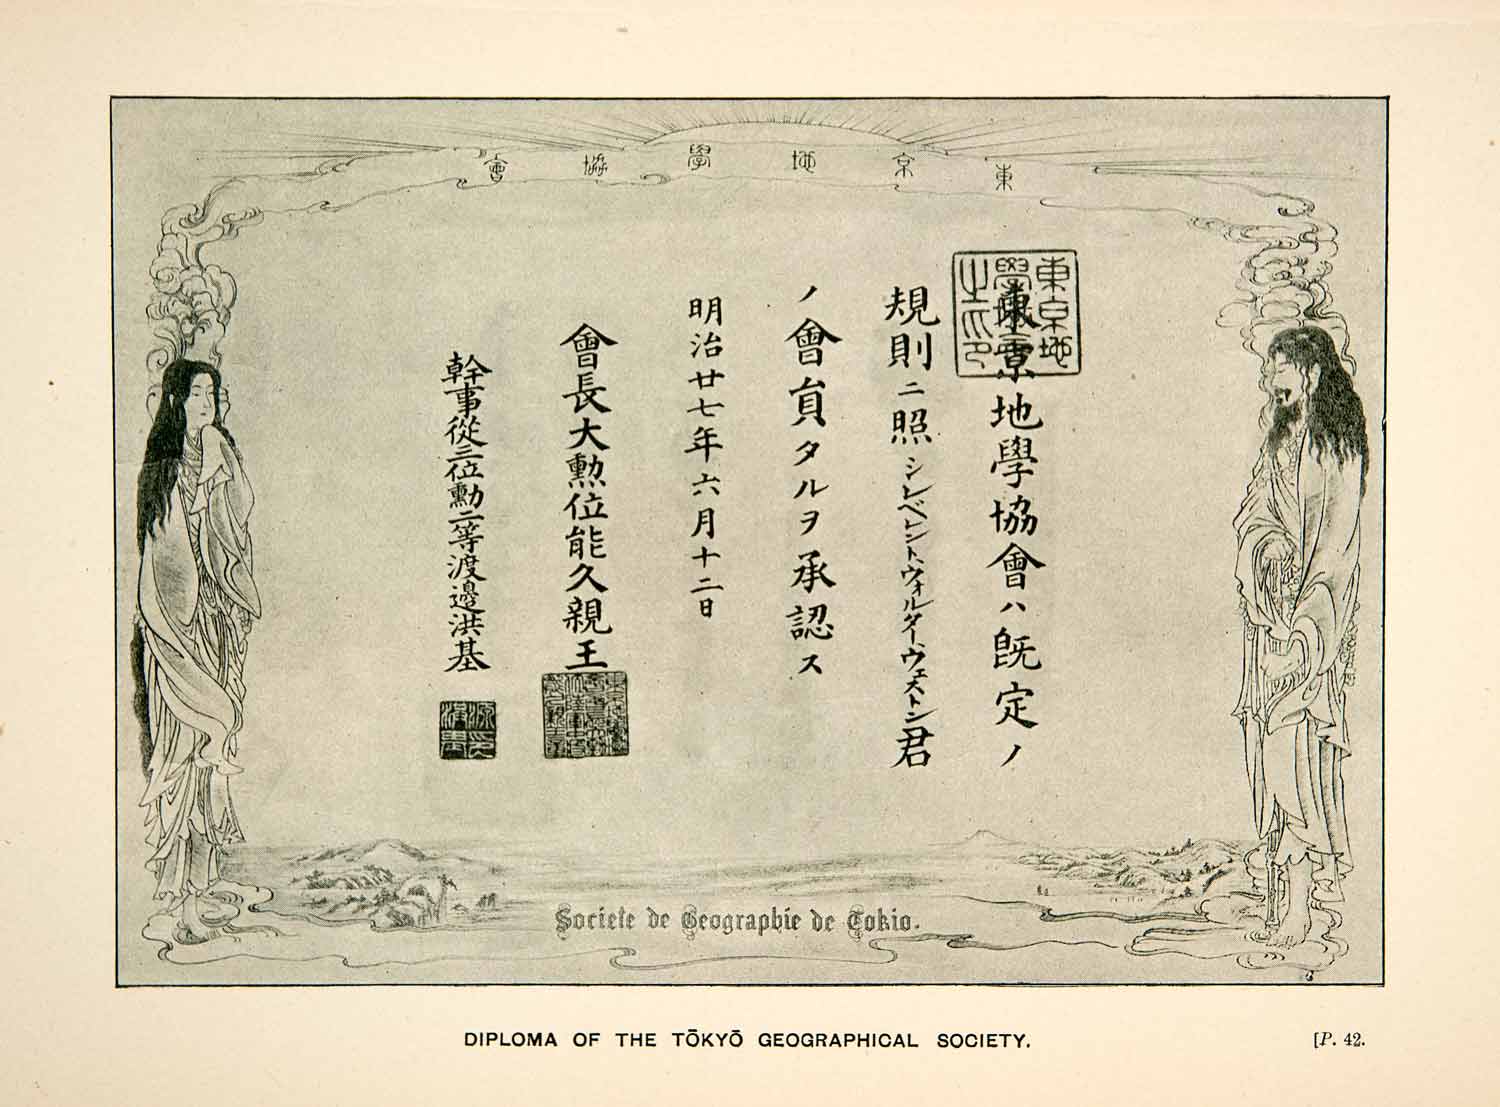 東京地學協會
東京地學協會之印
東京地學協會ハ既定ノ
規則ニ照シレベレント、ウォルター、ウェストン君
ノ會員タルヲ承認ス
明治廿七年六月十二日
會長大勲位能久親王
幹事從三位勳二等渡邉洪基
Societe de Geographie de Tokio.
DIPLOMA OF THE TŌKYŌ GEOGRAPHICAL SOCIETY.
[P. 42.